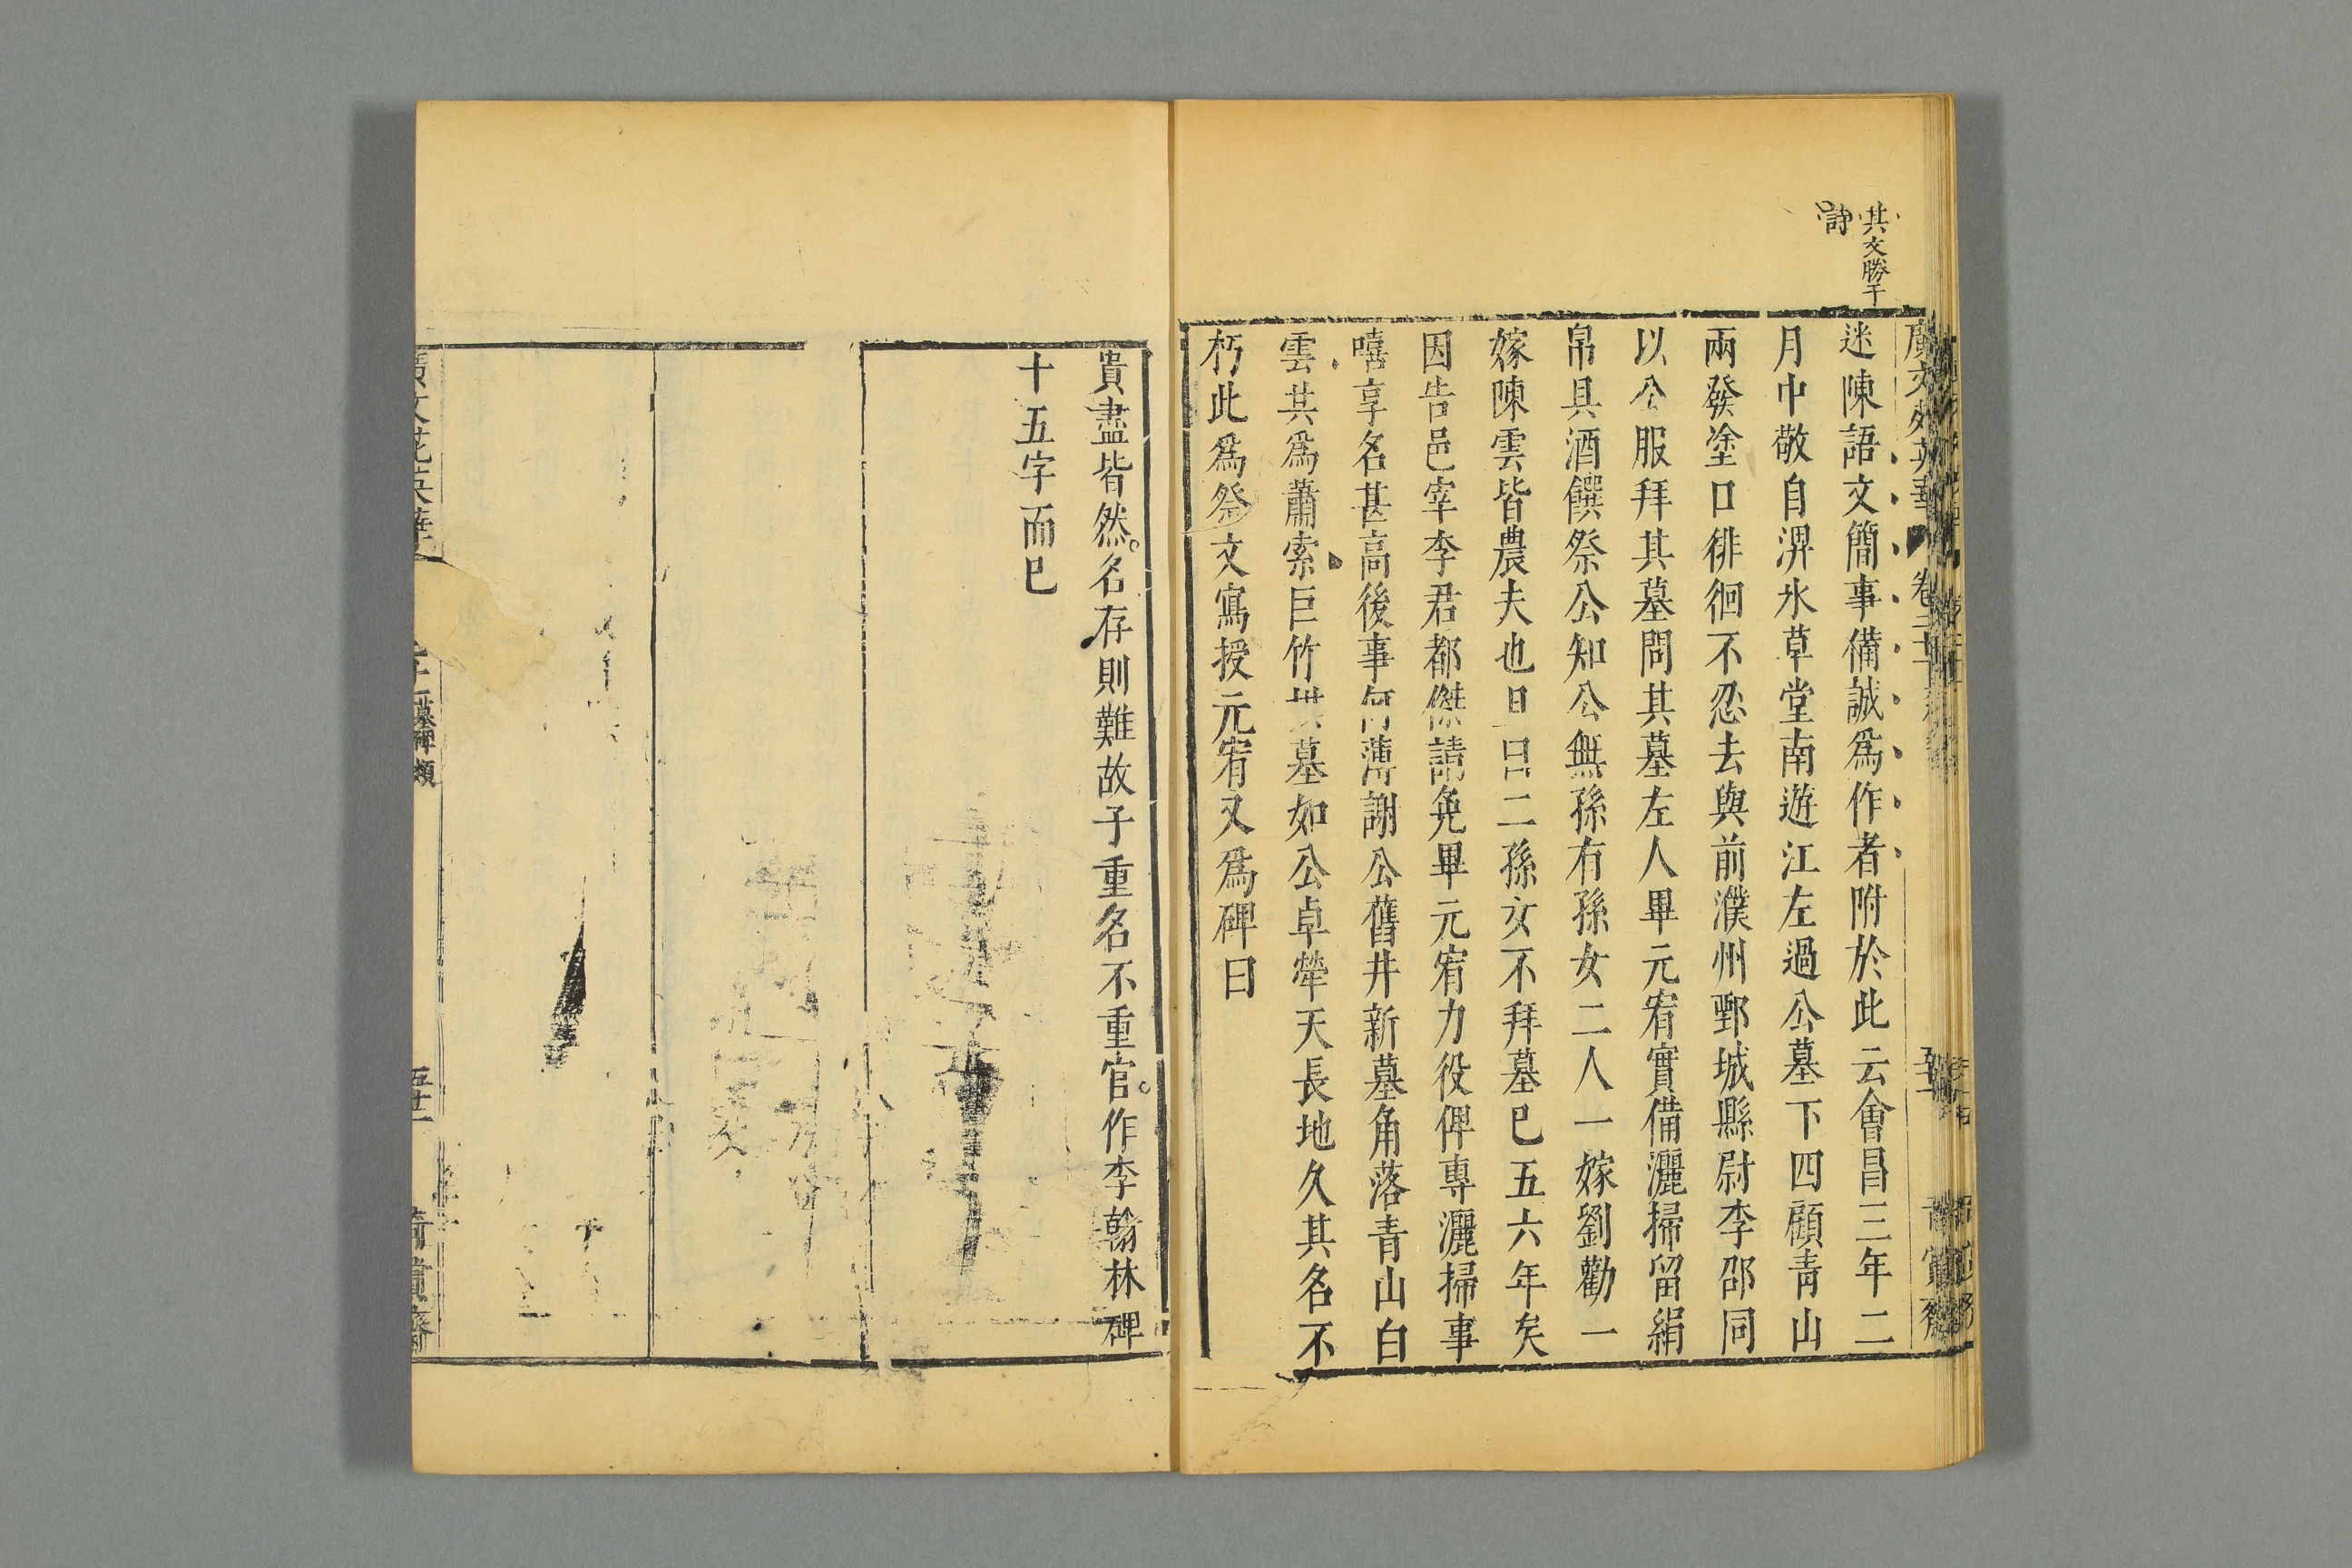 其文勝于
詩
廣文苑英華 卷二十
迷陳語文簡事備誠爲作者附於此云會昌三年二
月中敬自淠水草堂南遊江左過公墓下四顧青山
兩發塗口徘徊不忍去與前濮州鄄城縣尉李邵同
以公服拜其墓問其墓左人畢元宥實備灑掃留絹
帛具酒饌祭公知公無孫有孫女二人一嫁劉勸一
嫁陳雲皆農夫也且曰二孫女不拜墓已五六年矣
因告邑宰李君都傑請免畢元宥力役俾專灑掃事
嘻享名甚高後事何薄謝公舊井新墓角落青山白
雲共爲蕭索巨竹拱墓如公卓犖天長地久其名不
朽此爲祭文寫授元宥又爲碑曰
貴盡皆然名存則難故予重名不重官作李翰林碑
十五字而已
廣文苑英華
墓碑類